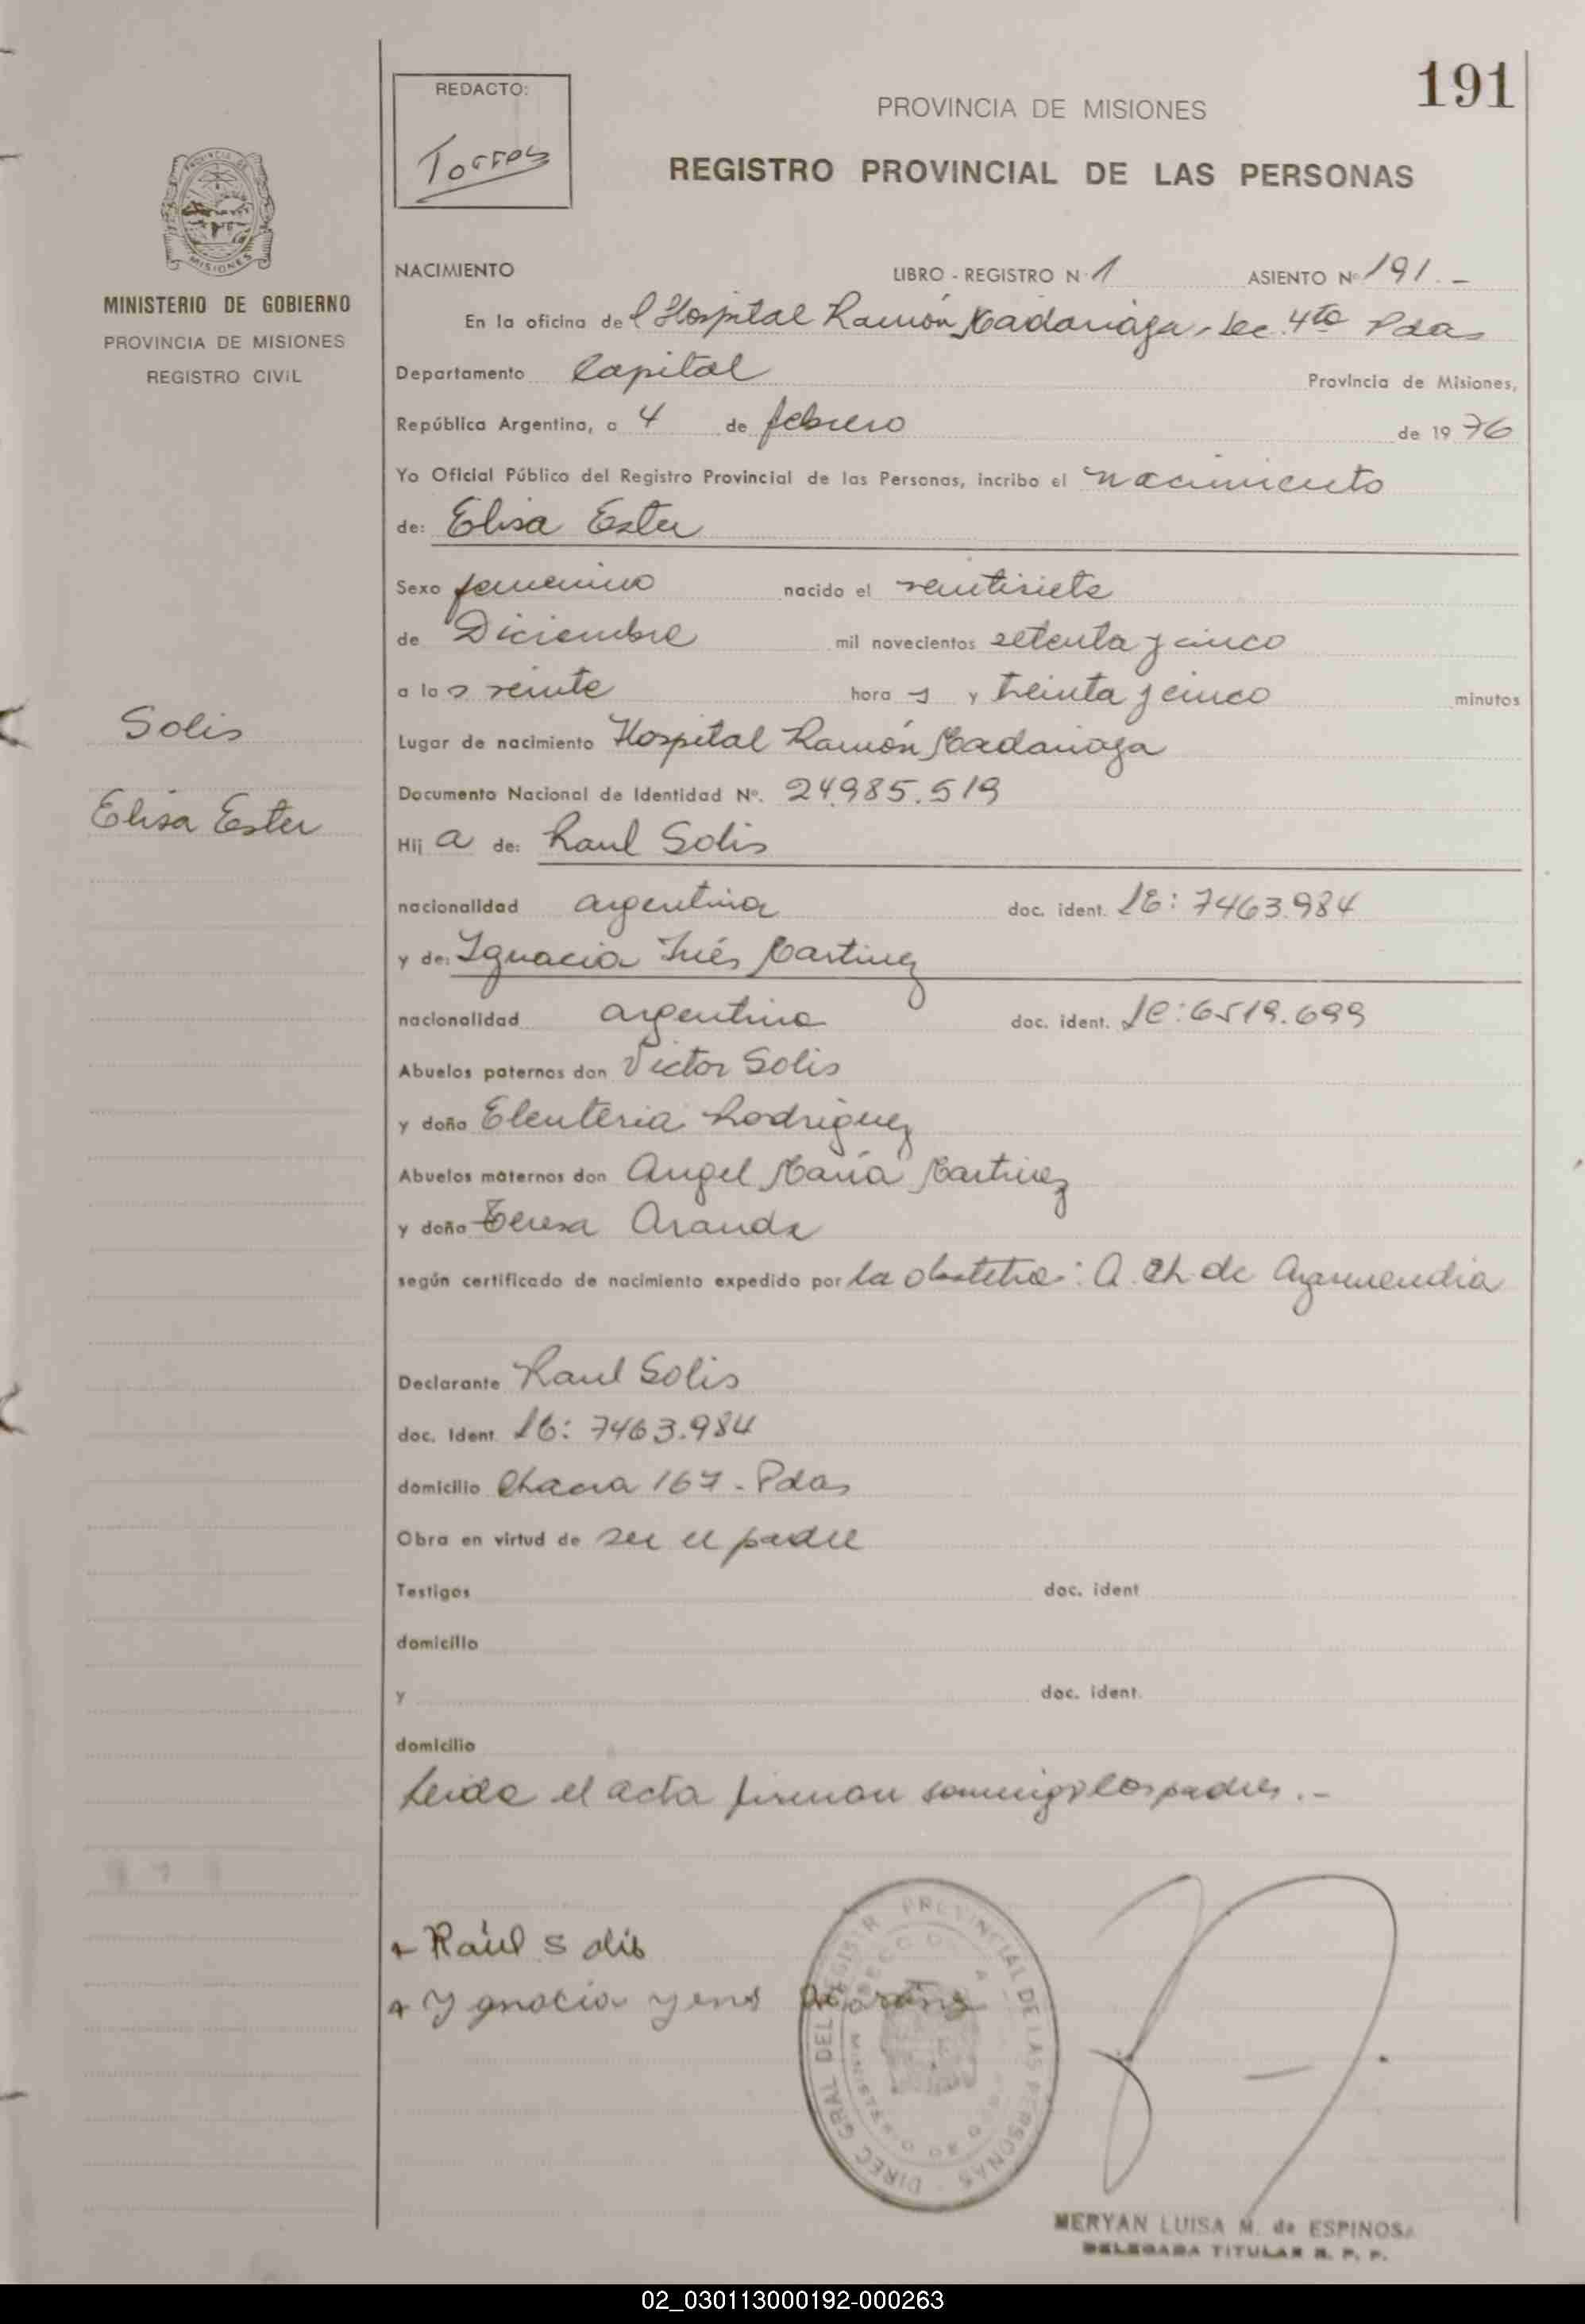 191
REDACTO:
Torres
PROVINCIA DE MISIONES
REGISTRO PROVINCIAL DE LAS PERSONAS
PROVINCIA DE
MISIONES
MINISTERIO DE GOBIERNO
PROVINCIA DE MISIONES
REGISTRO CIVIL
NACIMIENTO LIBRO - REGISTRO N 1 ASIENTO Nº 191.-
En la oficina del Hospital Ramón Madariaga, Sec. 4ta Pdas
Departamento Capital Provincia de Misiones,
República Argentina, a 4 de febrero de 1976
Yo Oficial Público del Registro Provincial de las Personas, incribo el nacimiento
de: Elisa Ester
Sexo femenino nacido el veintisiete
de Diciembre mil novecientos setenta y cinco
a las veinte horas y treinta y cinco minutos
Solis
Lugar de nacimiento Hospital Ramón Madariaga
Documento Nacional de Identidad Nº. 24.985.519
Elisa Ester
Hija de: Raul Solis
nacionalidad argentina doc. ident. LE: 7463.984
y de: Ignacia Inés Martinez
nacionalidad argentina doc. ident. LC: 6519.699
Abuelos paternos don Victor Solis
y doña Eleuteria Rodriguez
Abuelos maternos don Angel María Martinez
y doña Teresa Aranda
según certificado de nacimiento expedido por la obstetra: A. Ch de Azarmendia
Declarante Raul Solis
doc. Ident. LE: 7463.984
domicilio Chacra 167 - Pdas
Obra en virtud de ser el padre
Testigos doc. ident
domicilio
y doc. ident.
domicilio
Leida el acta firman conmigo los padres.-
Raúl Solis
Ygnacia yens
DIREC GRAL DEL REGISTR PROVINCIAL DE LAS PERSONAS
MINISTERIO DE GOB
MERYAN LUISA M. de ESPINOSA
DELEGADA TITULAR R. P. P.
02_030113000192-000263